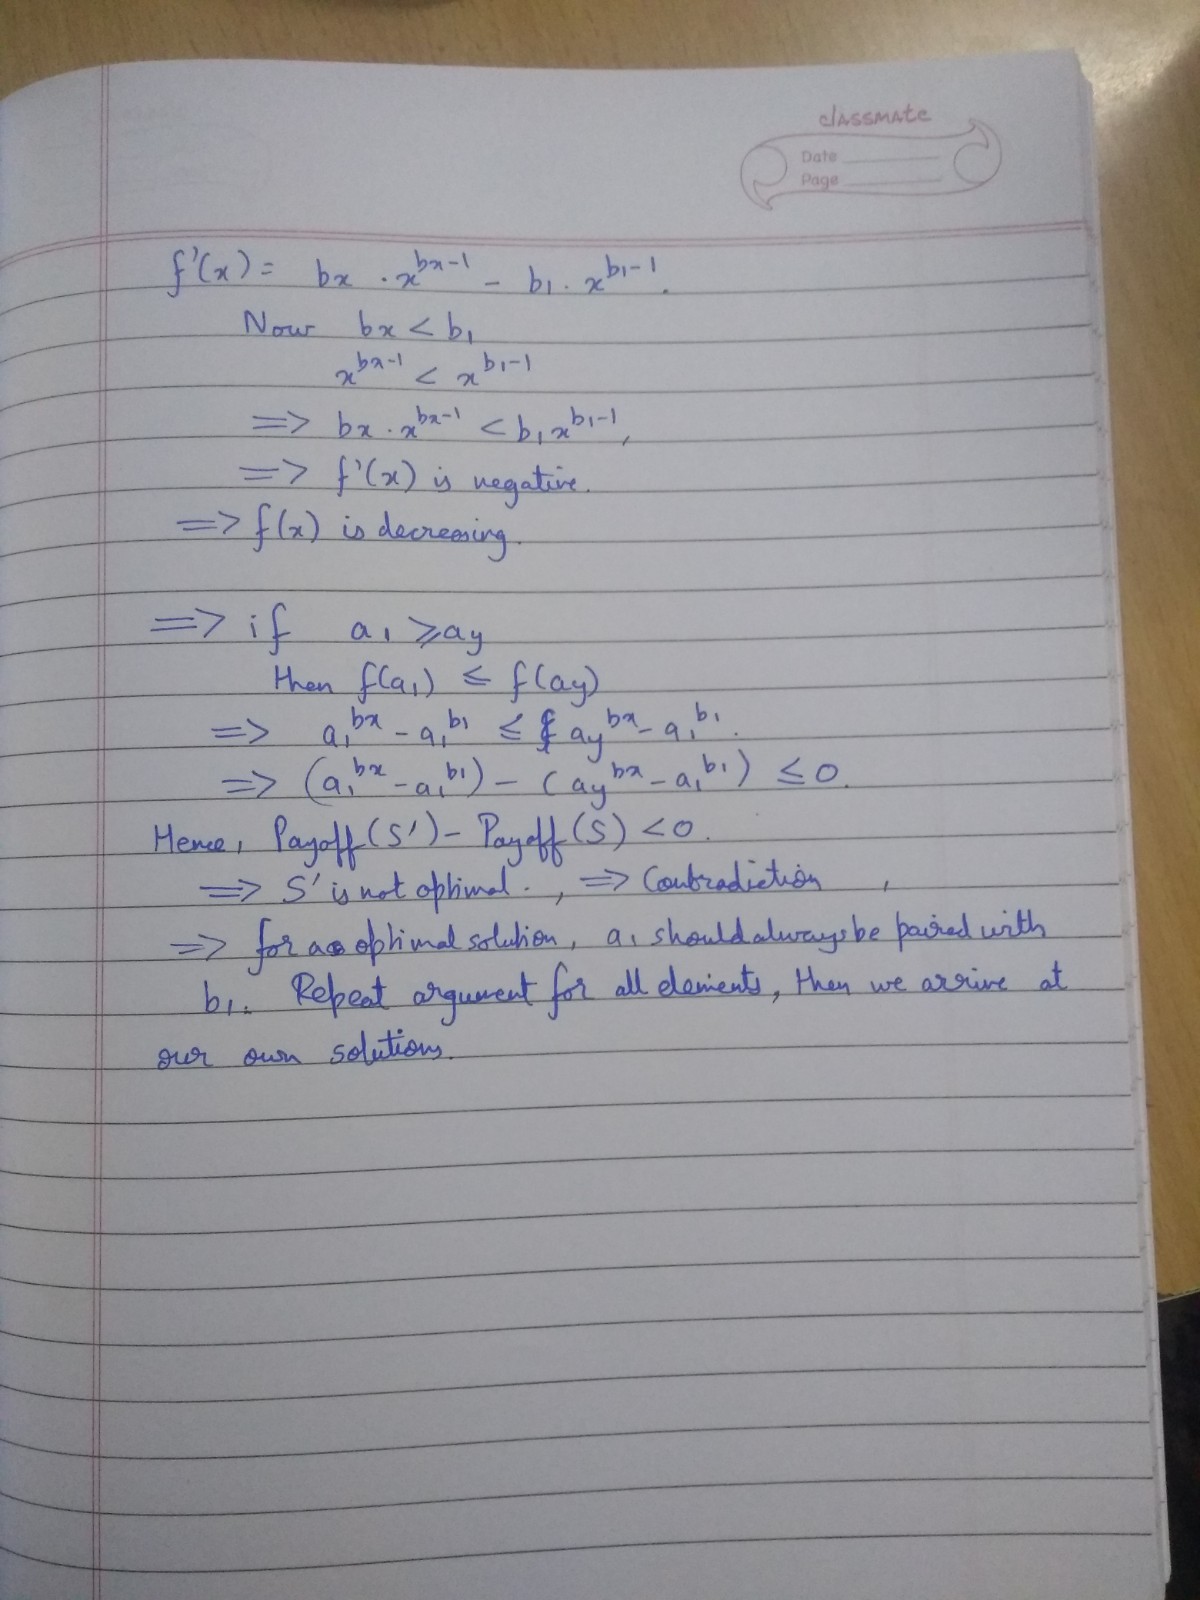 classmate
Date
Page
f'(x) = bx . x^(bx-1) - b1 . x^(b1-1).
Now bx < b1
x^(bx-1) < x^(b1-1)
=> bx . x^(bx-1) < b1 x^(b1-1),
=> f'(x) is negative.
=> f(x) is decreasing.
=> if a1 ⩾ ay
then f(a1) ≤ f(ay)
=> a1^bx - a1^b1 ≤ ay^bx - a1^b1.
=> (a1^bx - a1^b1) - (ay^bx - a1^b1) ≤ 0.
Hence, Payoff(S') - Payoff(S) < 0.
=> S' is not optimal. , => Contradiction ,
=> for a optimal solution, a1 should always be paired with
b1. Repeat argument for all elements, then we arrive at
our own solutions.